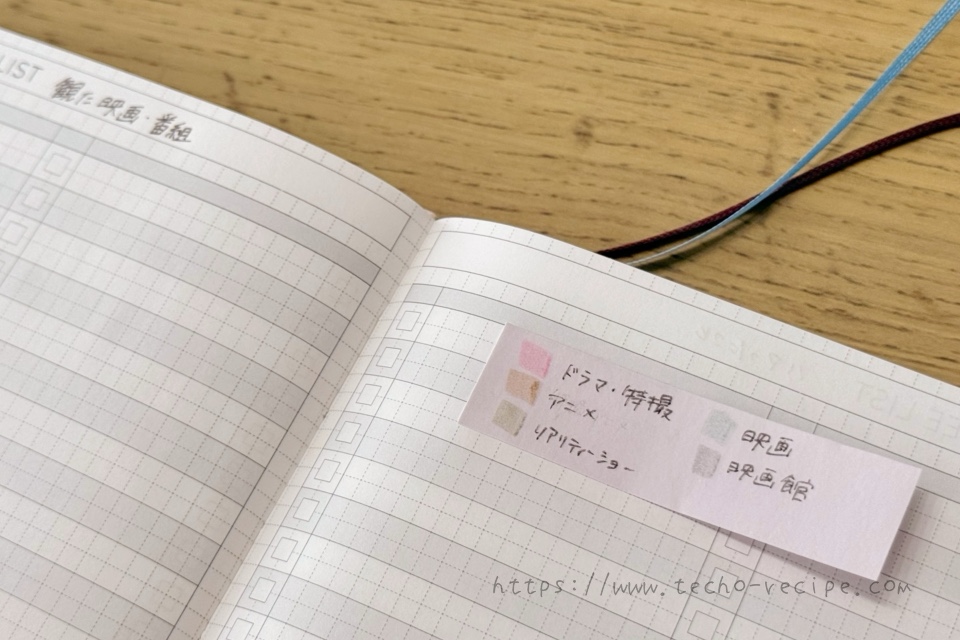 LIST 観た映画・番組
ドラマ・特撮
アニメ
リアリティーショー
映画
映画館
https://www.techo-recipe.com/